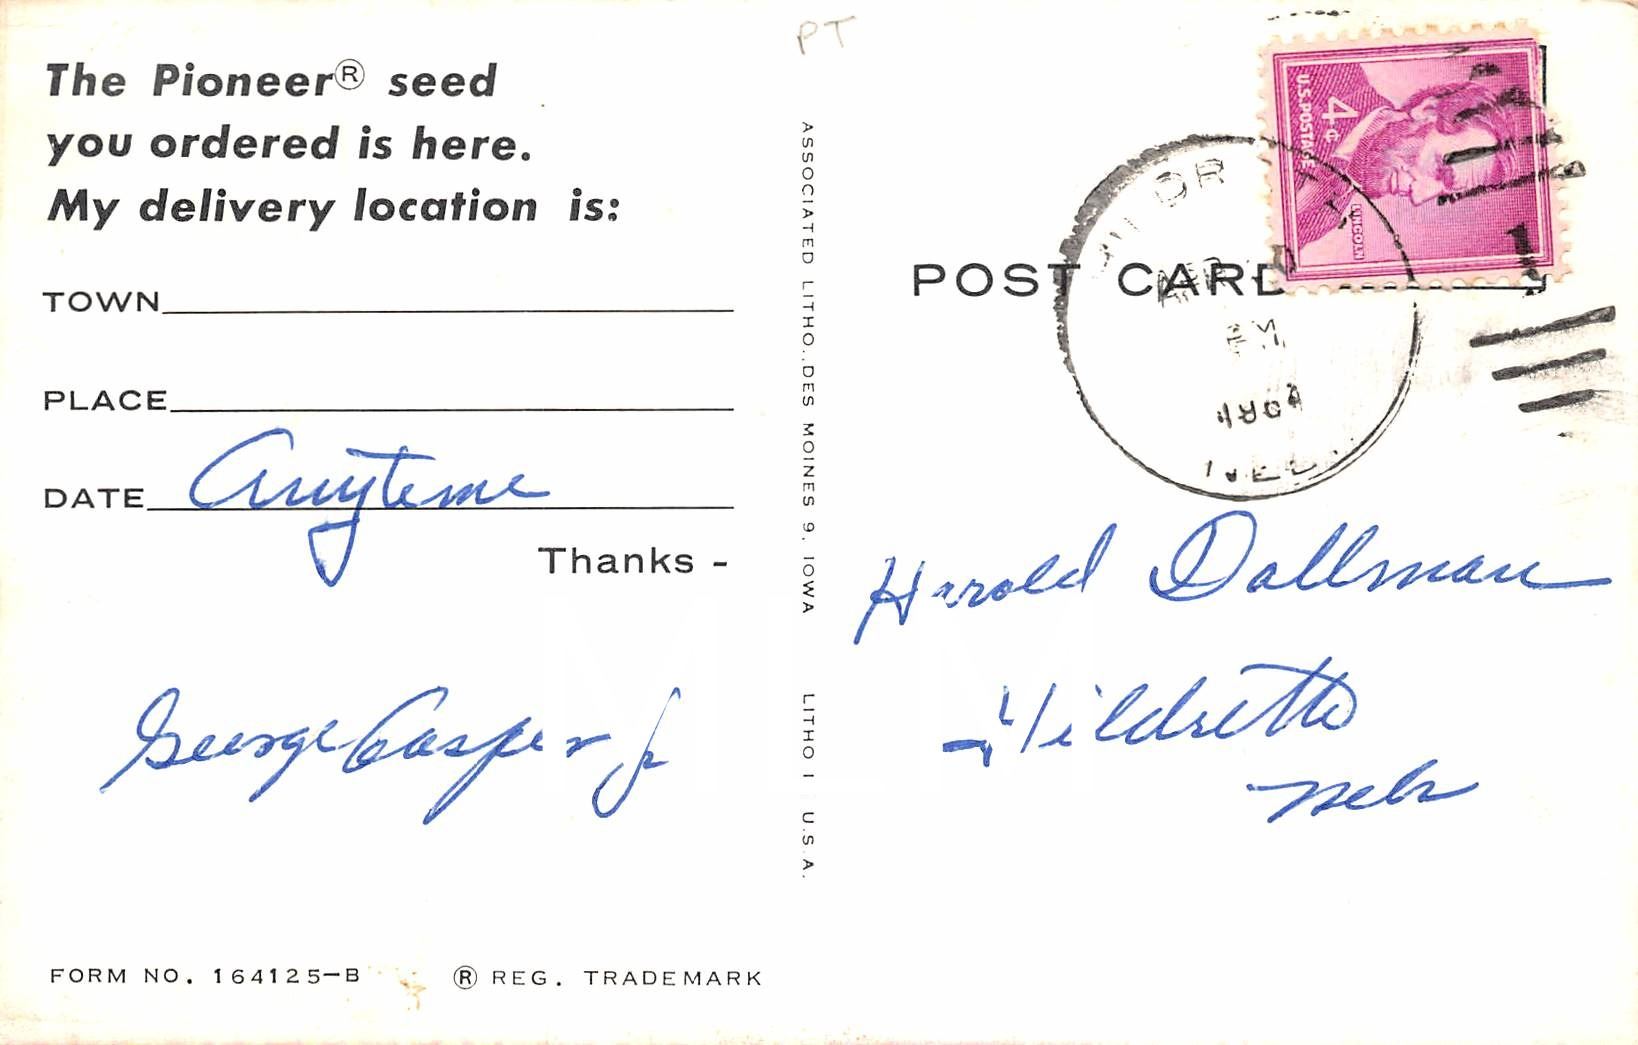 PT
The Pioneer® seed
you ordered is here.
My delivery location is:
TOWN
PLACE
DATE Anytime
Thanks -
George Casper Jr
FORM NO. 164125-B ® REG. TRADEMARK
ASSOCIATED LITHO., DES MOINES 9, IOWA LITHO I U.S.A.
U.S. POSTAGE
4¢
LINCOLN
POST CARD
PM
Harold Dallman
Hildreth
Nebr